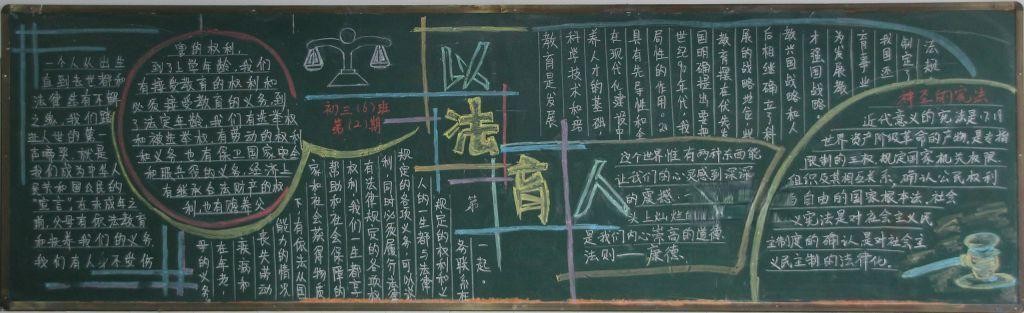 一个人从出生
直到去世都和
法律有着不解
之缘，我们踏
进人世的第一
声啼哭，就是
我们成为中华人
民共和国公民的
"宣言"，在未成年之
前，父母有依法教育
和抚养我们的义务，
我们有
里的权利，
到了上学年龄，我们
有接受教育的权利和
必须接受教育的义务，到
了法定年龄，我们有选举权
和被选举权，有劳动的权利
和义务，也有保卫国家
和服兵役的义务，经济上
有继承合法财产的权
利，也有赡养父
母的义务
在年老
疾病和
丧失劳动
能力的情况
下，有依法从国
家和社会获得物质
帮助和社会保障的
权利，我们一生都享
有法律规定的各项权
利，同时必须履行法律
规定的各项义务，可以说
人的一生都与法律
规定的权利和义
务联系在
一起。
初三(6)班
第(2)期
以
法
育
人
第
法规
制定了
我国还
为发展教
育事业
才强国战略，
教兴国战略和人
后相继确立了科
展的战略地位，此
教育摆在优先发
国明确提出要把
世纪90年代，我
局性的作用。20
具有先导性和全
在现代化建设中
养人才的基础，
科学技术和培
教育是发展
这个世界惟有两种东西能
让我们的心灵感到深深
的震撼：
头上灿烂
是我们内心崇高的道德
法则——康德
神圣的宪法
近代意义的宪法是17、18
世界资产阶级革命的产物，是专指
限制的王权，规定国家机关权限
组织及其相互关系，确认公民权利
与自由的国家根本法，社会
义宪法是对社会主义民
主制度的确认是对社会主
义民主制的法律化。